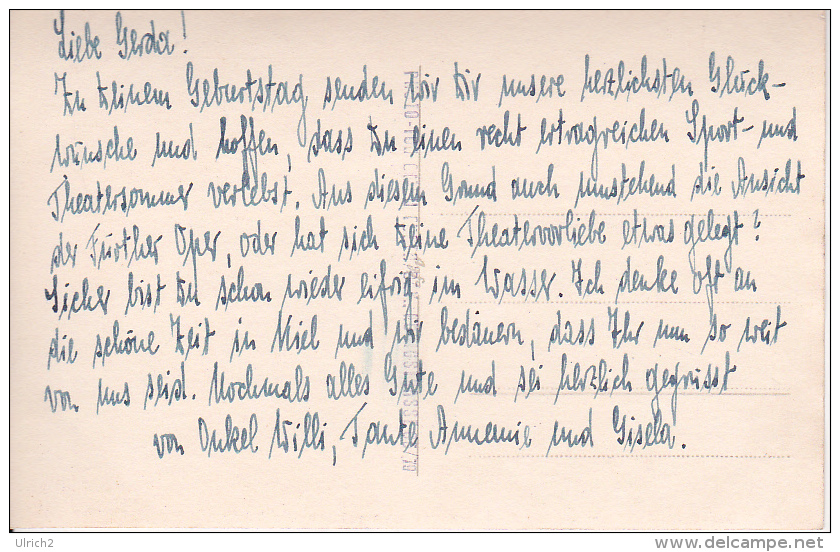 Liebe Gerda!
Zu Deinem Geburtstag senden wir Dir unsere herzlichsten Glück-
wünsche und hoffen, dass Du einen recht ertragreichen Sport- und
Theatersommer verlebst. Aus diesem Grund auch umstehend die Ansicht
der Fürther Oper, oder hat sich Deine Theatervorliebe etwas gelegt?
Sicher bist Du schon wieder eifrig im Wasser. Ich denke oft an
die schöne Zeit in Kiel und wir bedauern, dass Ihr nun so weit
von uns seid. Nochmals alles Gute und sei herzlich gegrüsst
von Onkel Willi, Tante Annemie und Gisela.
Ulrich2
www.delcampe.net